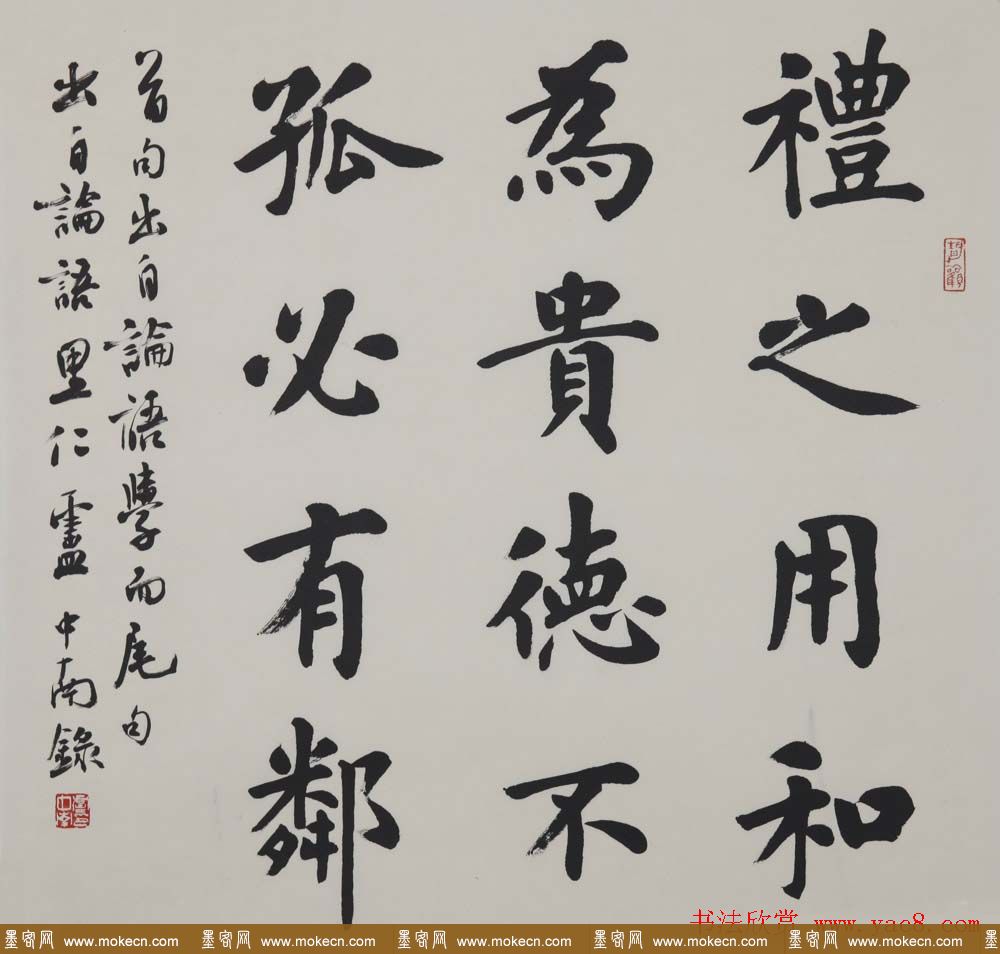 禮之用和
為貴德不
孤必有鄰
首句出自論語學而尾句
出自論語里仁盧中南錄
書法欣赏 www.yac8.com
墨客网 www.mokecn.com 墨客网 www.mokecn.com 墨客网 www.mokecn.com 墨客网 www.mokecn.com 墨客网 www.mokecn.com